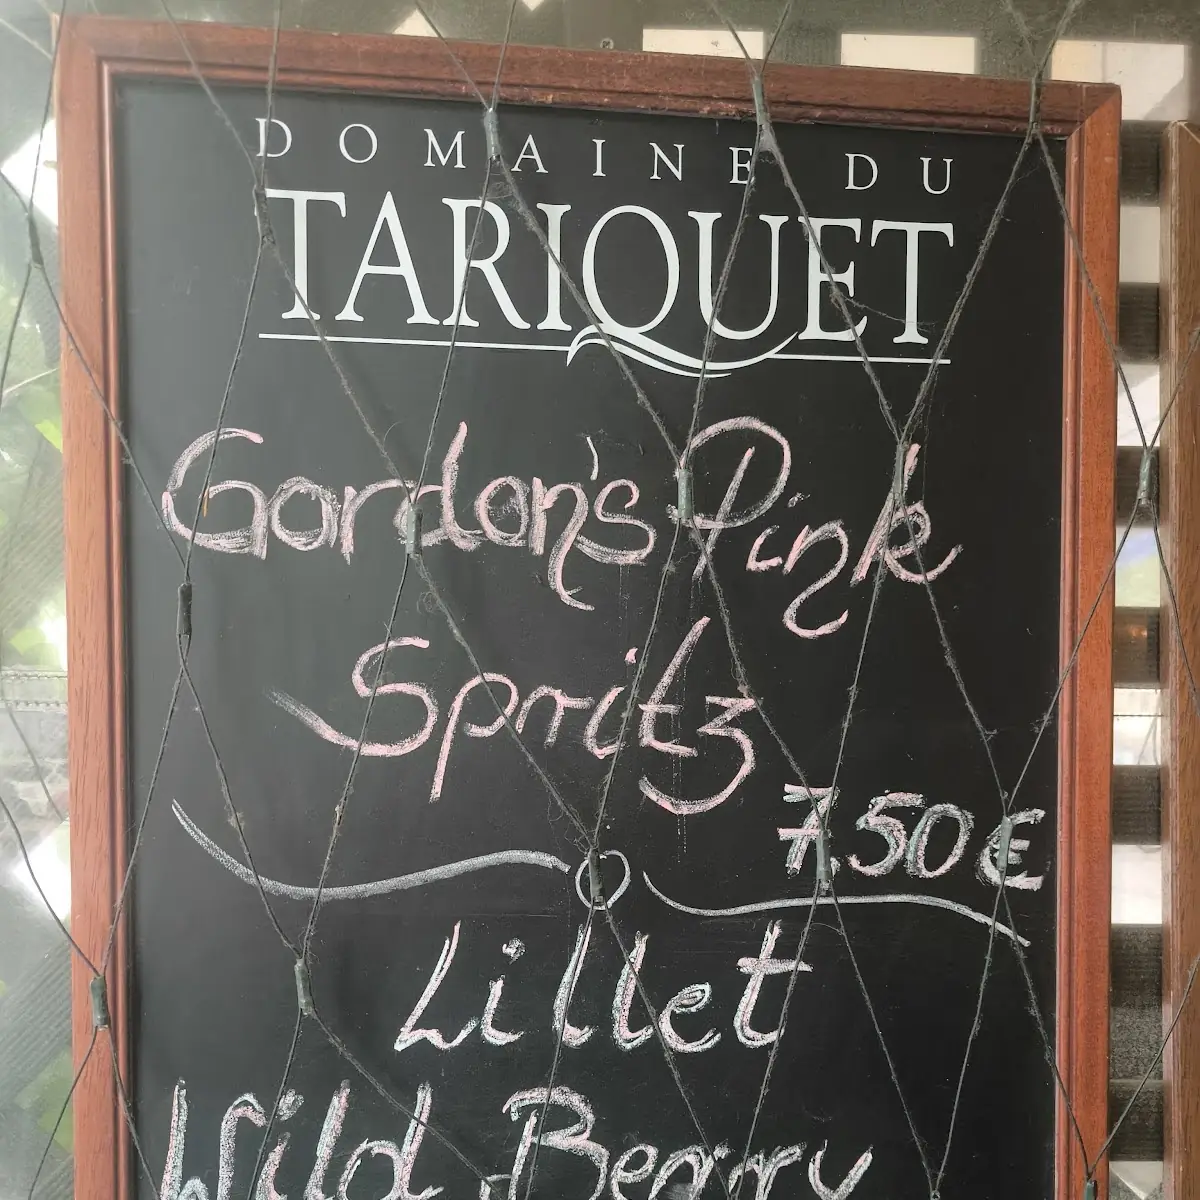 DOMAINE DU
TARIQUET
Gordon's Pink
Spritz
7.50€
Lillet
Wild Berry